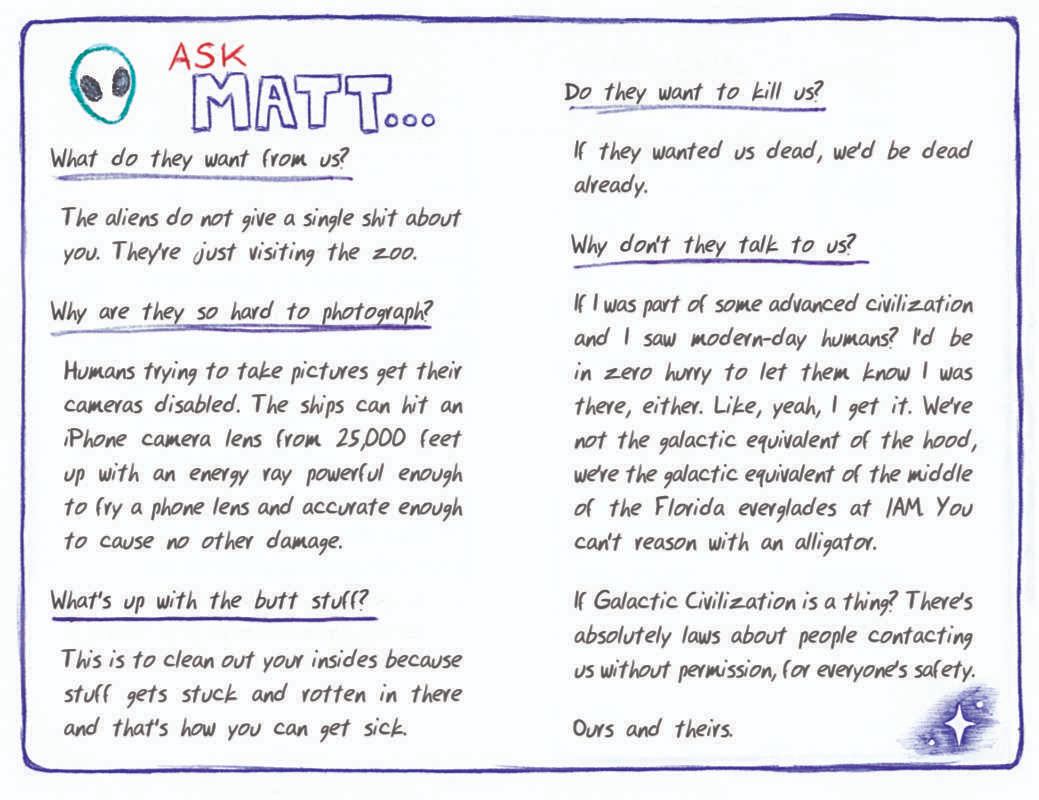 ASK
MATT...
What do they want from us?
The aliens do not give a single shit about
you. They're just visiting the zoo.
Why are they so hard to photograph?
Humans trying to take pictures get their
cameras disabled. The ships can hit an
iPhone camera lens from 25,000 feet
up with an energy ray powerful enough
to fry a phone lens and accurate enough
to cause no other damage.
What's up with the butt stuff?
This is to clean out your insides because
stuff gets stuck and rotten in there
and that's how you can get sick.
Do they want to kill us?
If they wanted us dead, we'd be dead
already.
Why don't they talk to us?
If I was part of some advanced civilization
and I saw modern-day humans? I'd be
in zero hurry to let them know I was
there, either. Like, yeah, I get it. We're
not the galactic equivalent of the hood,
we're the galactic equivalent of the middle
of the Florida everglades at 1AM. You
can't reason with an alligator.
If Galactic Civilization is a thing? There's
absolutely laws about people contacting
us without permission, for everyone's safety.
Ours and theirs.